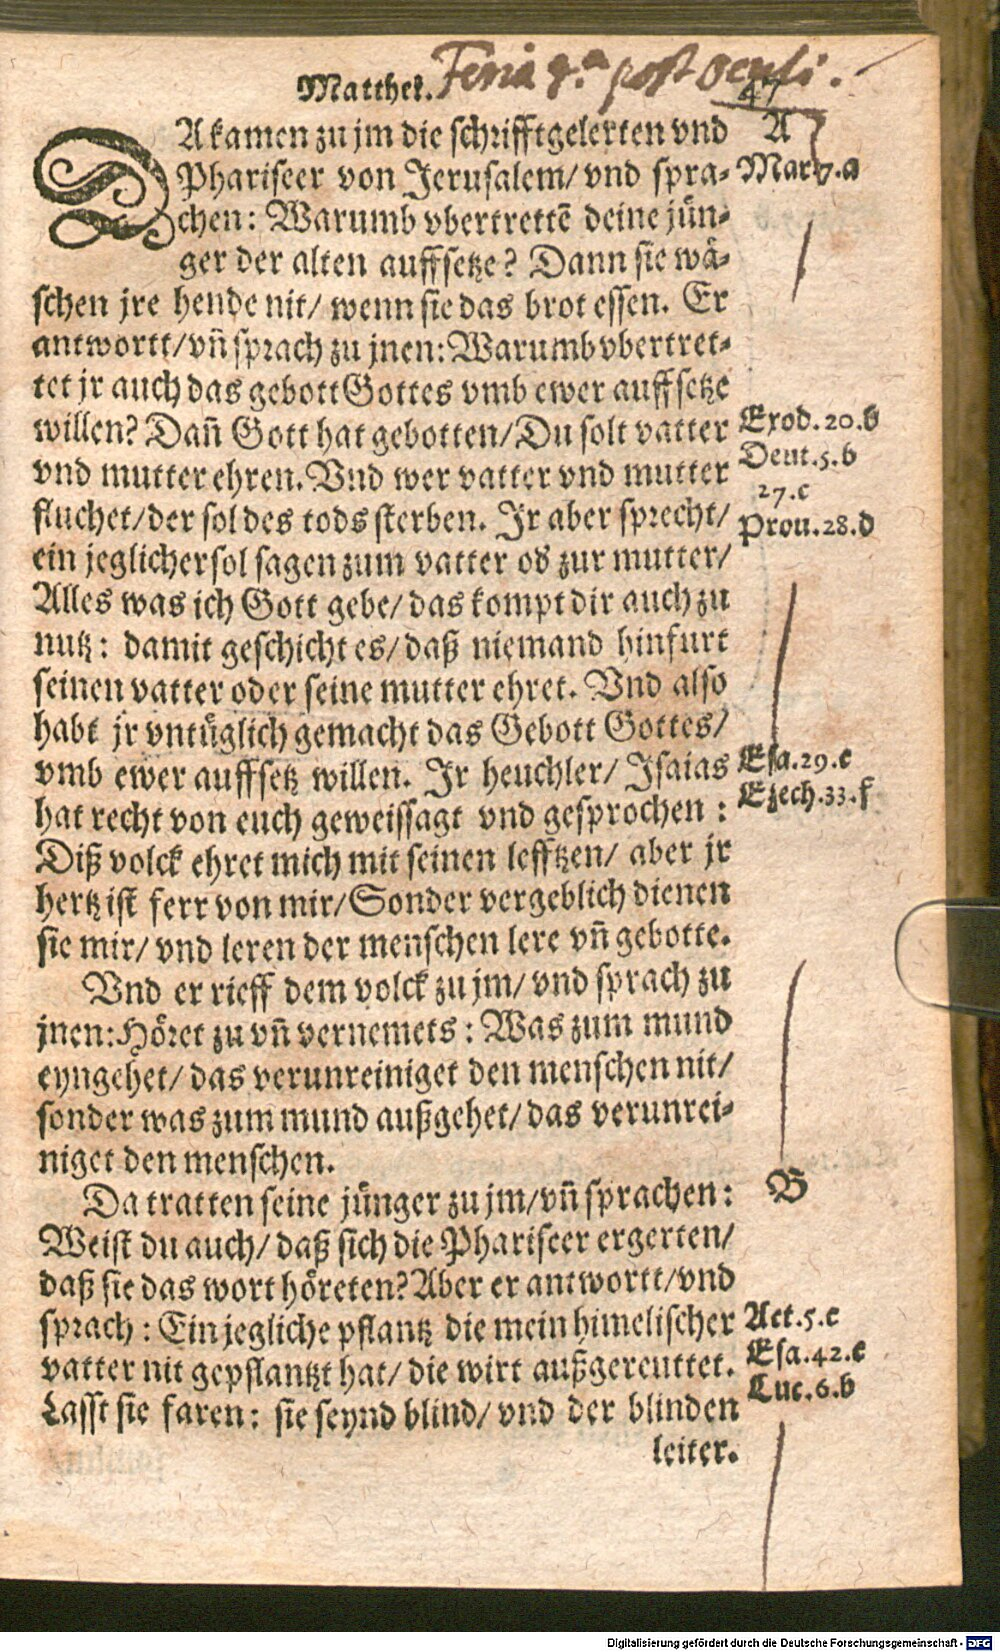 Matthei. Feria 4.a post oculi.
47
DA kamen zu jm die schrifftgelerten vnd
A
Phariseer von Jerusalem/ vnd spra-
Mar. 7.a
chen: Warumb vbertrettē deine jün-
ger der alten auffsetze? Dann sie wä-
schen jre hende nit/ wenn sie das brot essen. Er
antwortt/ vñ sprach zu jnen: Warumb vbertret-
tet jr auch das gebott Gottes vmb ewer auffsetze
willen? Dañ Gott hat gebotten/ Du solt vatter
Exod. 20.b
vnd mutter ehren. Vnd wer vatter vnd mutter
Deut. 5.b
27.c
fluchet/ der sol des tods sterben. Jr aber sprecht/
Prou. 28.d
ein jeglicher sol sagen zum vatter od zur mutter/
Alles was ich Gott gebe/ das kompt dir auch zu
nutz: damit geschicht es/ daß niemand hinfurt
seinen vatter oder seine mutter ehret. Vnd also
habt jr vntüglich gemacht das Gebott Gottes/
vmb ewer auffsetz willen. Jr heuchler/ Isaias
Esa. 29.c
hat recht von euch geweissagt vnd gesprochen:
Ezech. 33.f
Diß volck ehret mich mit seinen lefftzen/ aber jr
hertz ist ferr von mir/ Sonder vergeblich dienen
sie mir/ vnd leren der menschen lere vñ gebotte.
Vnd er rieff dem volck zu jm/ vnd sprach zu
jnen: Höret zu vñ vernemets: Was zum mund
eyngehet/ das verunreiniget den menschen nit/
sonder was zum mund außgehet/ das verunrei-
niget den menschen.
Da tratten seine jünger zu jm/ vñ sprachen:
B
Weist du auch/ daß sich die Phariseer ergerten/
daß sie das wort höreten? Aber er antwortt/ vnd
sprach: Ein jegliche pflantz die mein himelischer
Act. 5.e
vatter nit gepflantzt hat/ die wirt außgereuttet.
Esa. 42.c
Lasst sie faren: sie seynd blind/ vnd der blinden
Luc. 6.b
leiter.
Digitalisierung gefördert durch die Deutsche Forschungsgemeinschaft - DFG